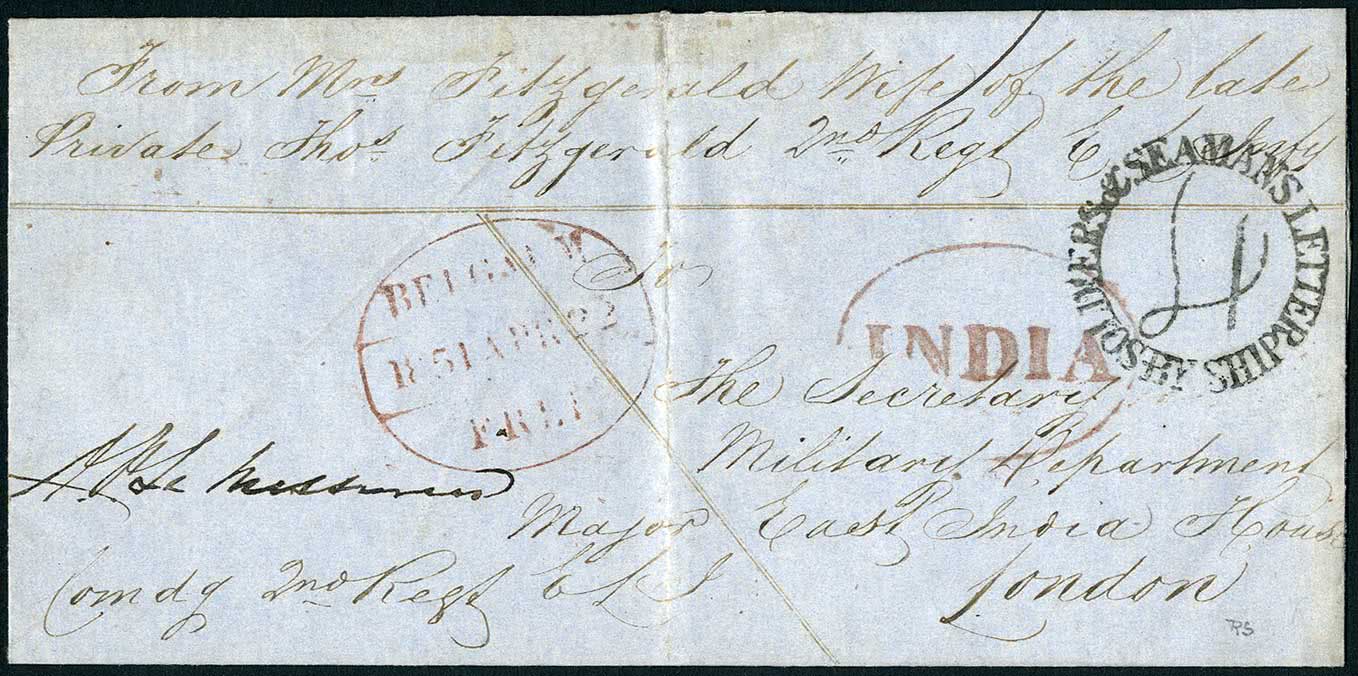 From Mrs Fitzgerald Wife of the late
Private Thos Fitzgerald 2nd Regt E L Infy
SOLDIERS & SEAMANS LETTER BY SHIPHS POST
4
BELGAUM
1851 APR 22
FREE
To
INDIA
The Secretary
Military Department
East India House
London
Major
Comdg 2nd Regt E L I
RS